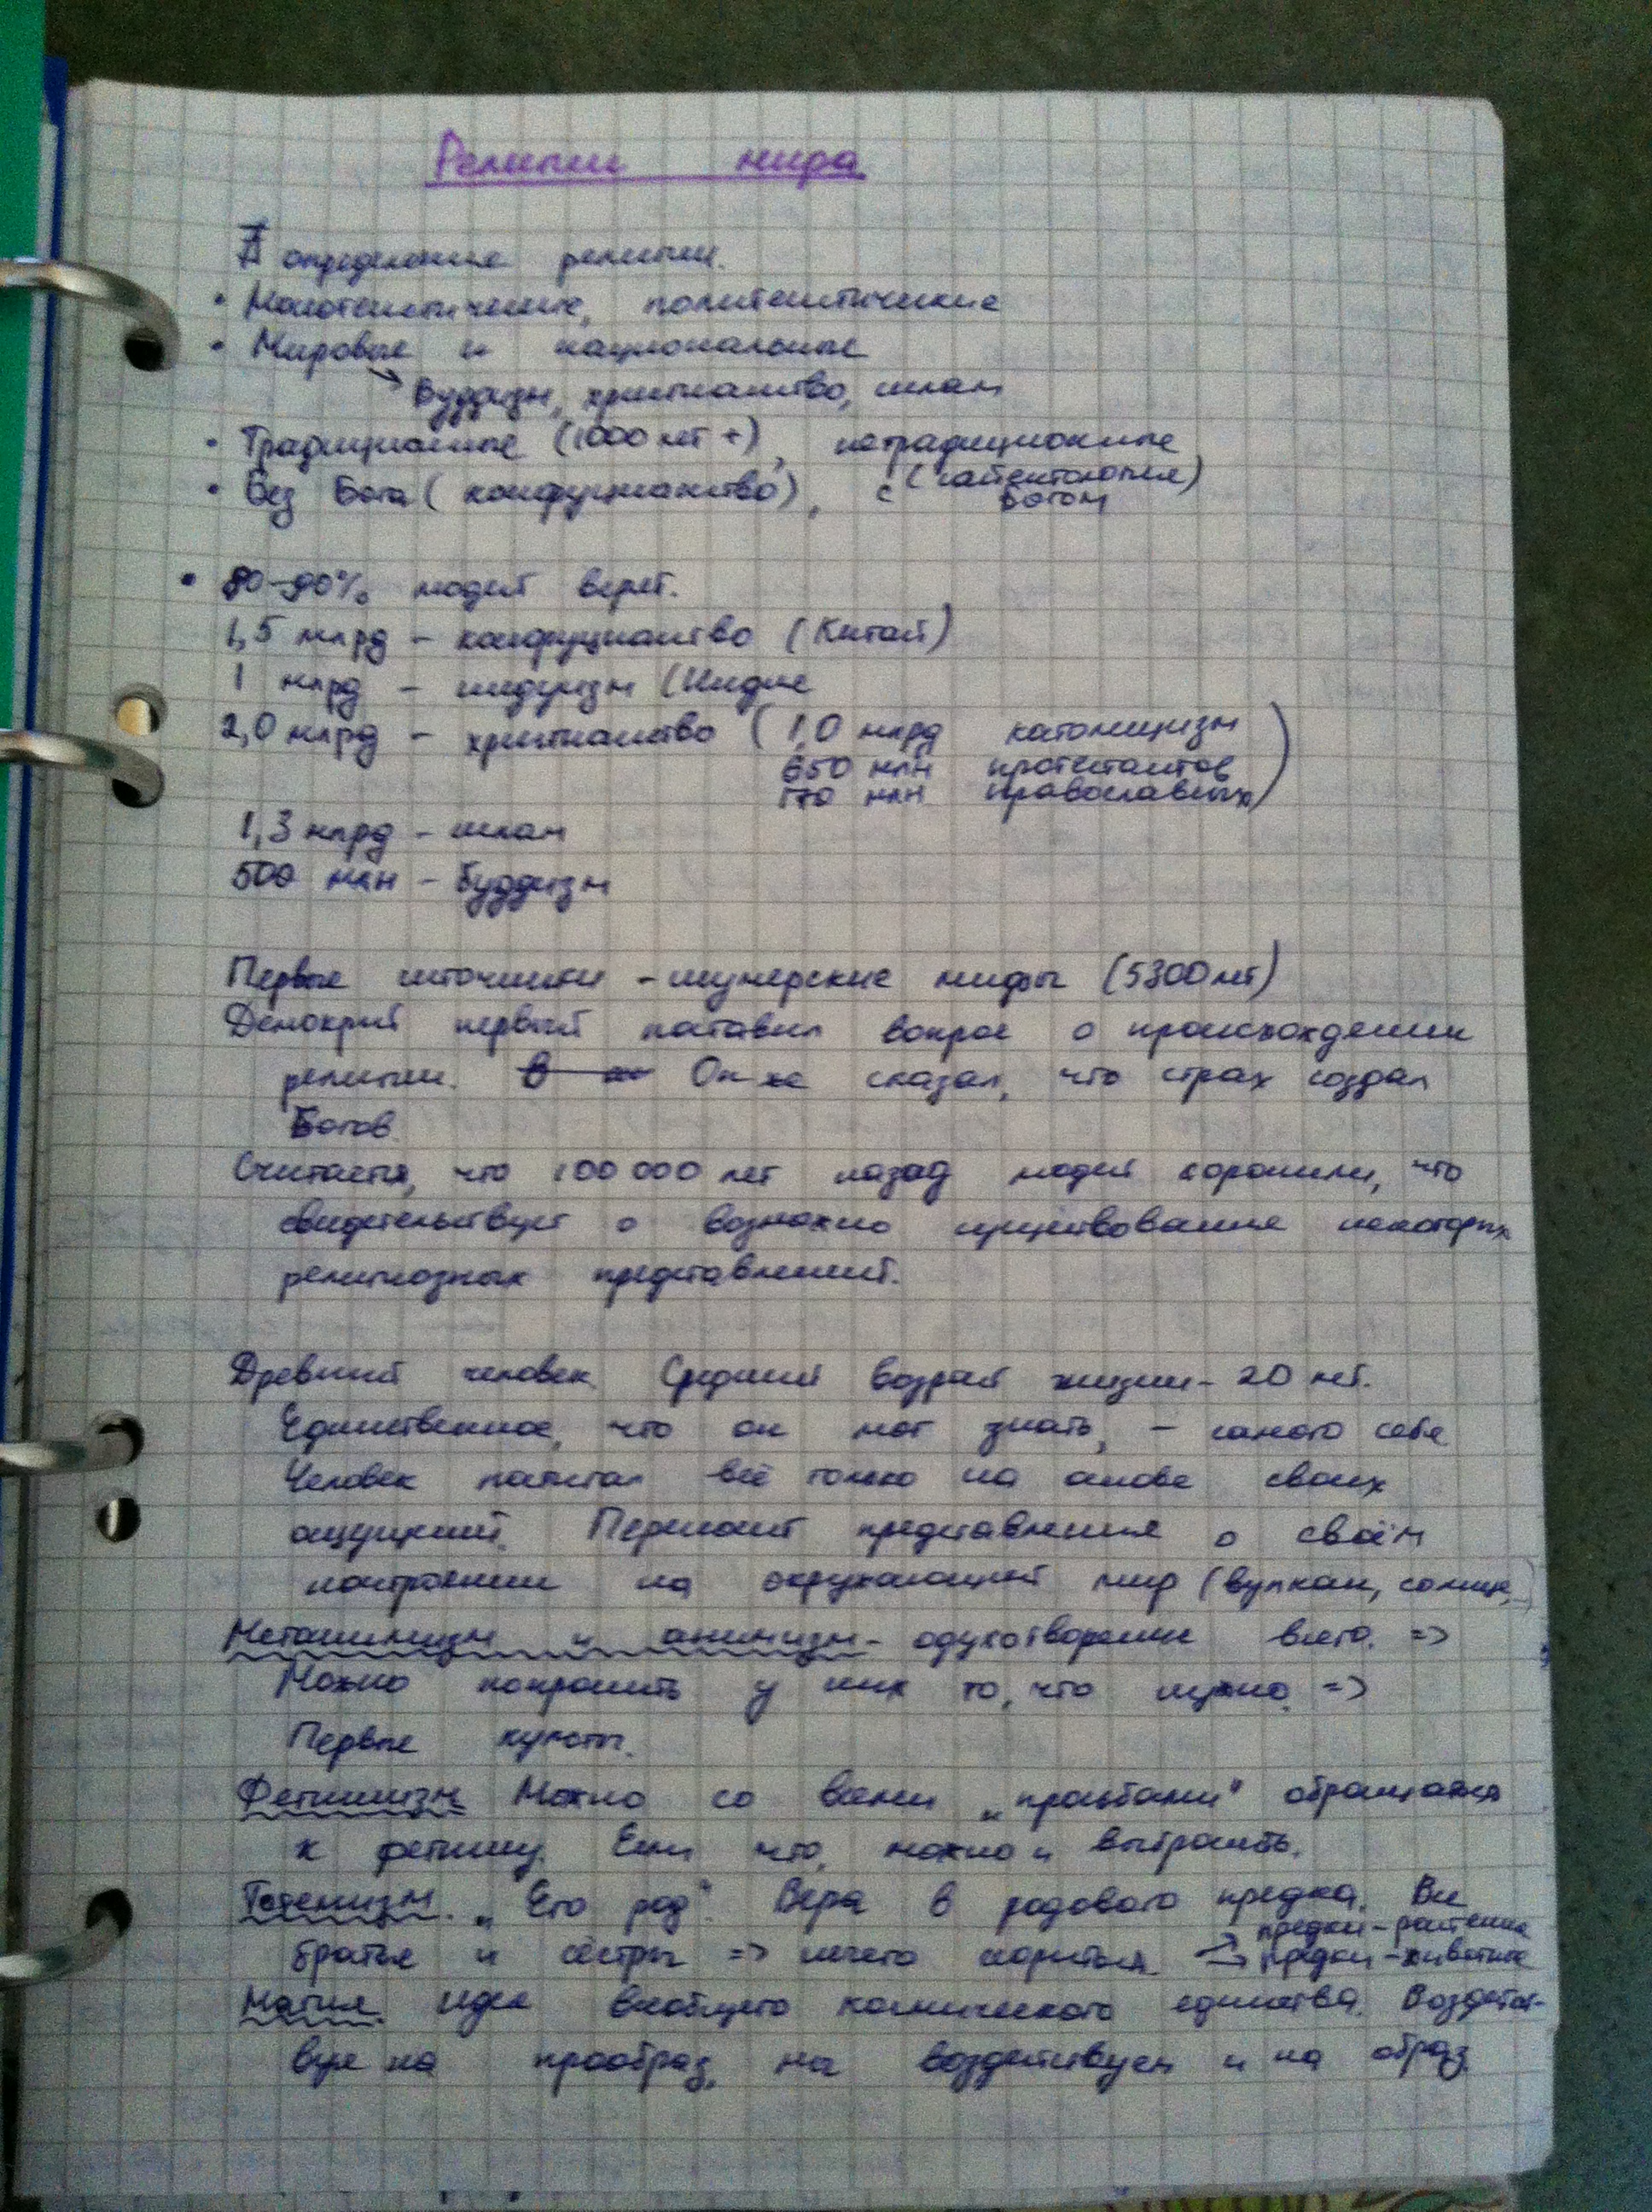 Религии мира
∄ определение религии.
• Монотеистические, политеистические
• Мировые и национальные
→ Буддизм, христианство, ислам
• Традиционные (1000 лет +), нетрадиционные
(сайентология)
• Без Бога (конфуцианство), с Богом
• 80-90% людей верят.
1,5 млрд - конфуцианство (Китай)
1 млрд - индуизм (Индия
2,0 млрд - христианство (1,0 млрд католицизм
650 млн протестантов
170 млн православных)
1,3 млрд - ислам
500 млн - Буддизм
Первые источники - шумерские мифы (5300 лет)
Демокрит первый поставил вопрос о происхождении
религии. Он же сказал, что страх создал
Богов.
Считается, что 100 000 лет назад людей хоронили, что
свидетельствует о возможно существование некоторых
религиозных представлений.
Древний человек. Средний возраст жизни - 20 лет.
Единственное, что он мог знать, - самого себя
Человек постигал всё только на основе своих
ощущений. Переносит представления о своём
настроении на окружающий мир (вулкан, солнце,..)
и анимизм - одухотворение всего. =>
Можно попросить у них то, что нужно. =>
Первые культы.
Фетишизм. Можно со всеми „просьбами“ обращаться
к фетишу. Если что, можно и выбросить.
Тотемизм. „Его род“. Вера в родового предка. Все
братья и сёстры => нечего ссориться. → предки-растения
→ предки-животные
Магия. Идея всеобщего космического единства. Воздейст-
вуя на прообраз, мы воздействуем и на образ.